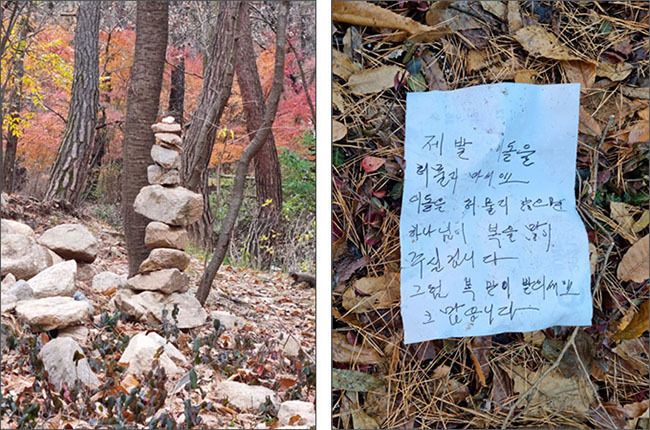 제발 이돌을
허물지 마세요
이돌을 허물지 않으면
하나님이 복을 많이
주실겁니다
그럼 복 많이 받으세요
고맙습니다